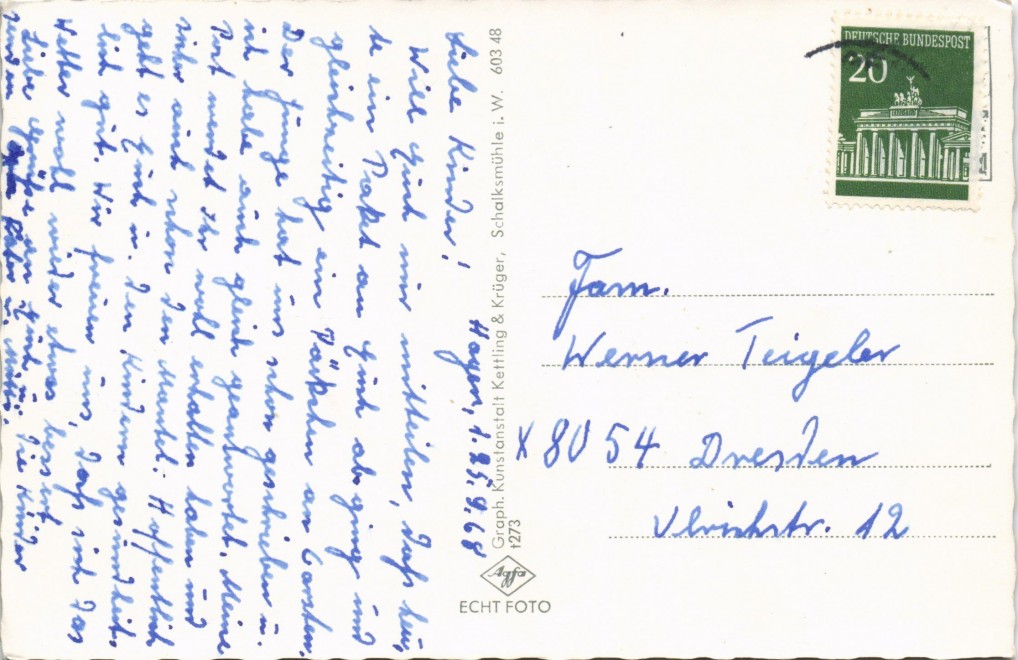 Hagen, 1. 25.9.68
Liebe Kinder!
Will Euch nur mitteilen, daß heu-
te ein Paket an Euch abging und
gleichzeitig ein Päckchen an Carsten.
Der Junge hat uns schon geschrieben u.
ich habe auch gleich geantwortet. Meine
Post werdet Ihr wohl erhalten haben und
sicher auch schon den Mantel. Hoffentlich
geht es Euch u. den Kindern gesundheit-
lich gut. Wir freuen uns, daß sich das
Wetter wohl wieder etwas bessert.
Liebe Grüße an Euch u. die Kinder
senden Vater u. Mutti.
Graph. Kunstanstalt Kettling & Krüger, Schalksmühle i. W. 603 48
t273
Agfa
ECHT FOTO
DEUTSCHE BUNDESPOST
20
Fam.
Werner Teigeler
X 8054 Dresden
Ulrichstr. 12